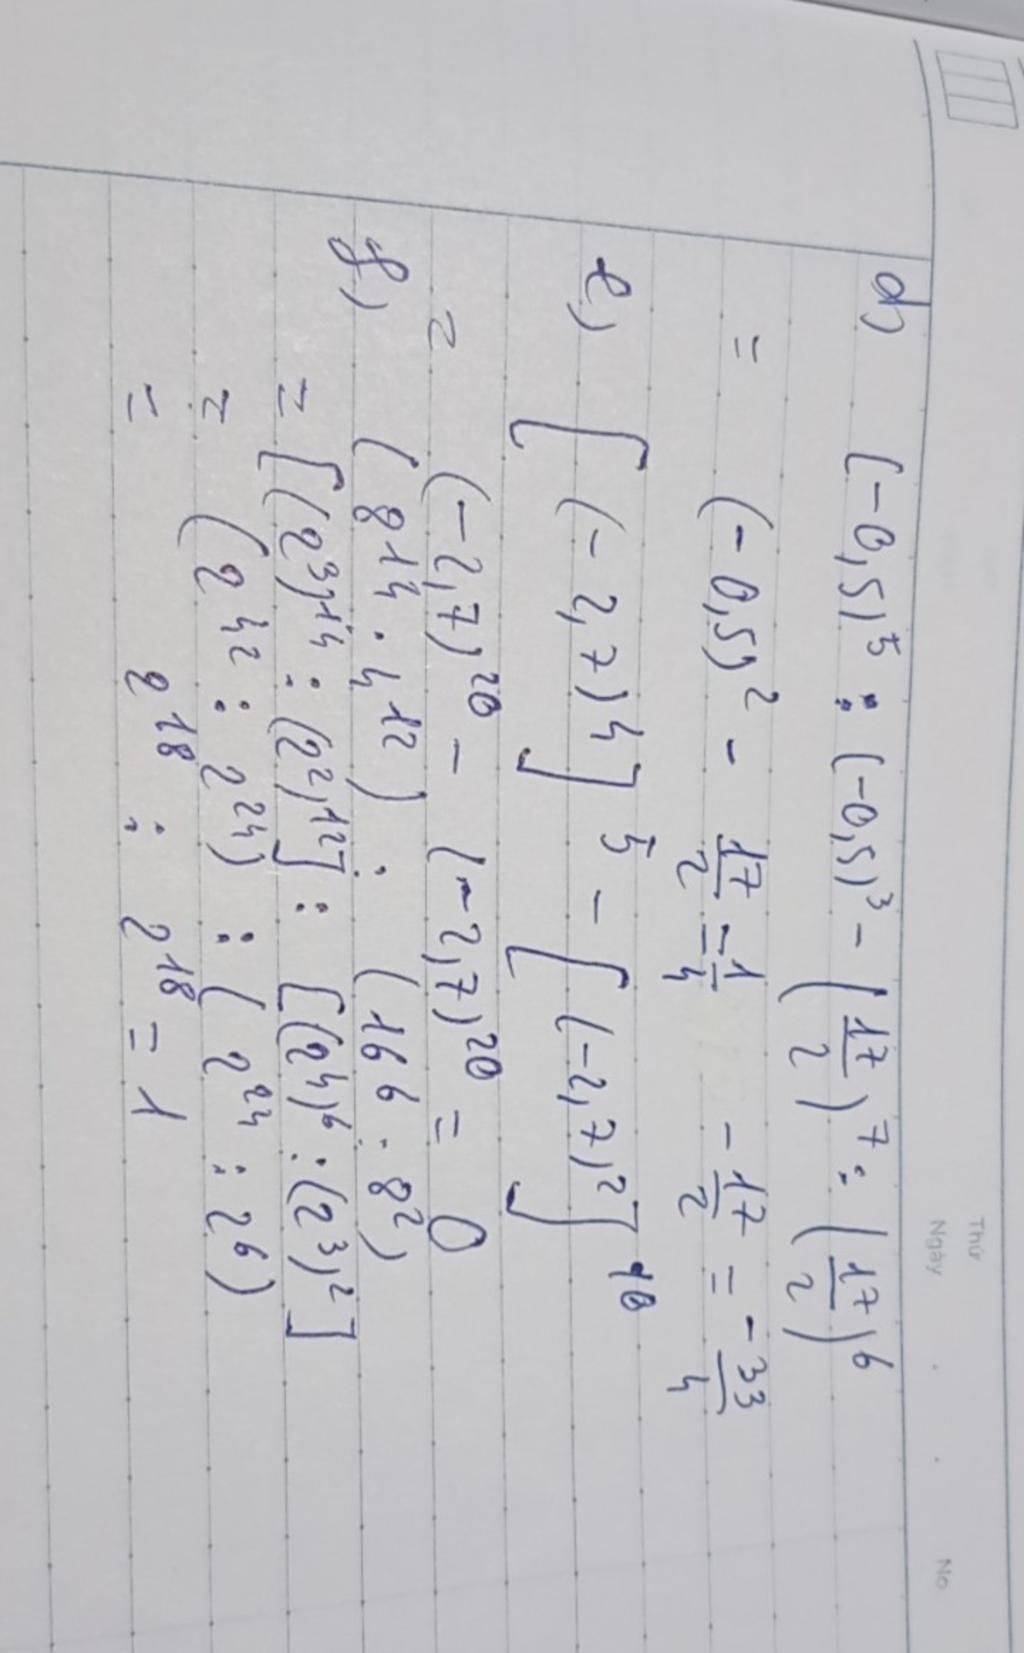 Thứ
Ngày . . No
d) (-0,5)⁵ : (-0,5)³ - (17/2)⁷ : (17/2)⁶
= (-0,5)² - 17/2 = 1/4 - 17/2 = -33/4
e) [(-2,7)⁴]⁵ - [(-2,7)²]¹⁰
= (-2,7)²⁰ - (-2,7)²⁰ = 0
f) (8¹⁴ . 4¹²) : (16⁶ . 8²)
= [(2³)¹⁴ : (2²)¹²] : [(2⁴)⁶ : (2³)²]
= (2⁴² : 2²⁴) : (2²⁴ : 2⁶)
= 2¹⁸ : 2¹⁸ = 1